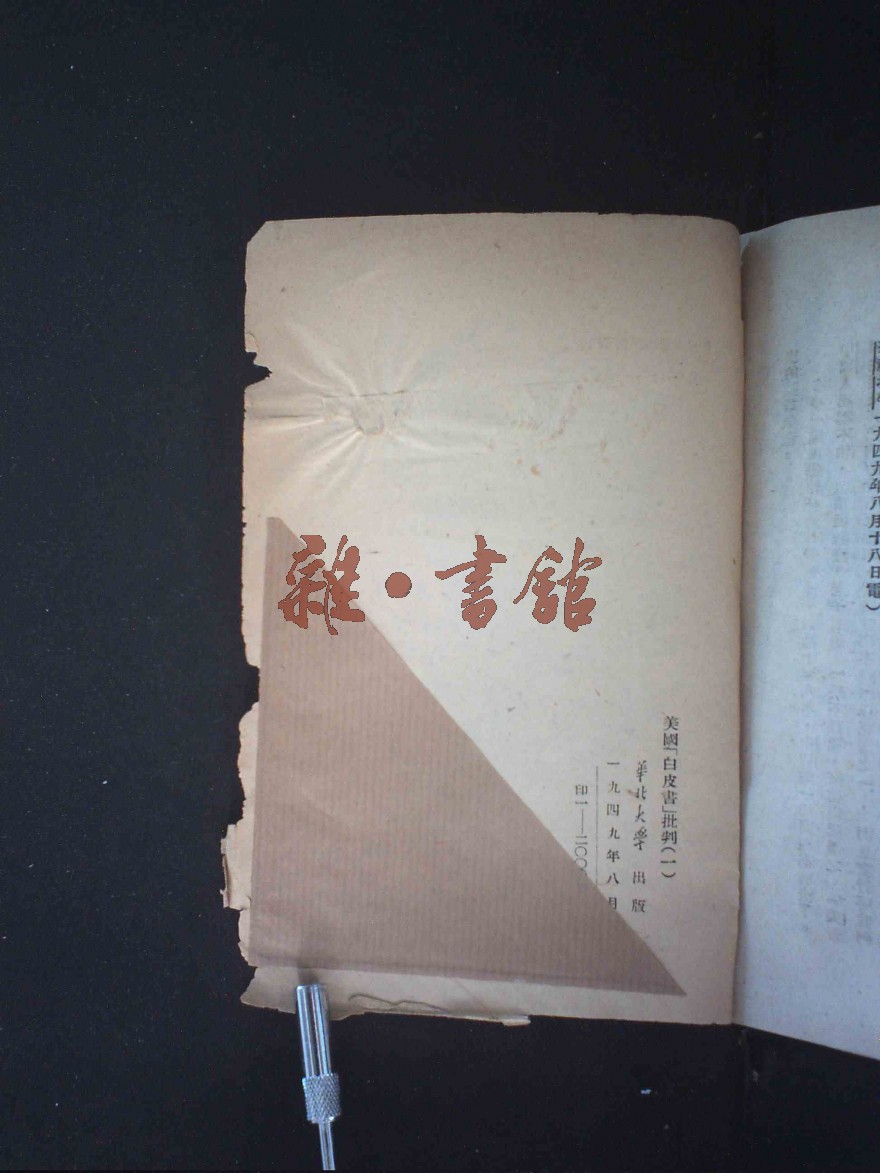 一九四九年八月十八日電）
美國「白皮書」批判（一）
華北大學 出版
一九四九年八月
印一——二〇〇
雜·書館